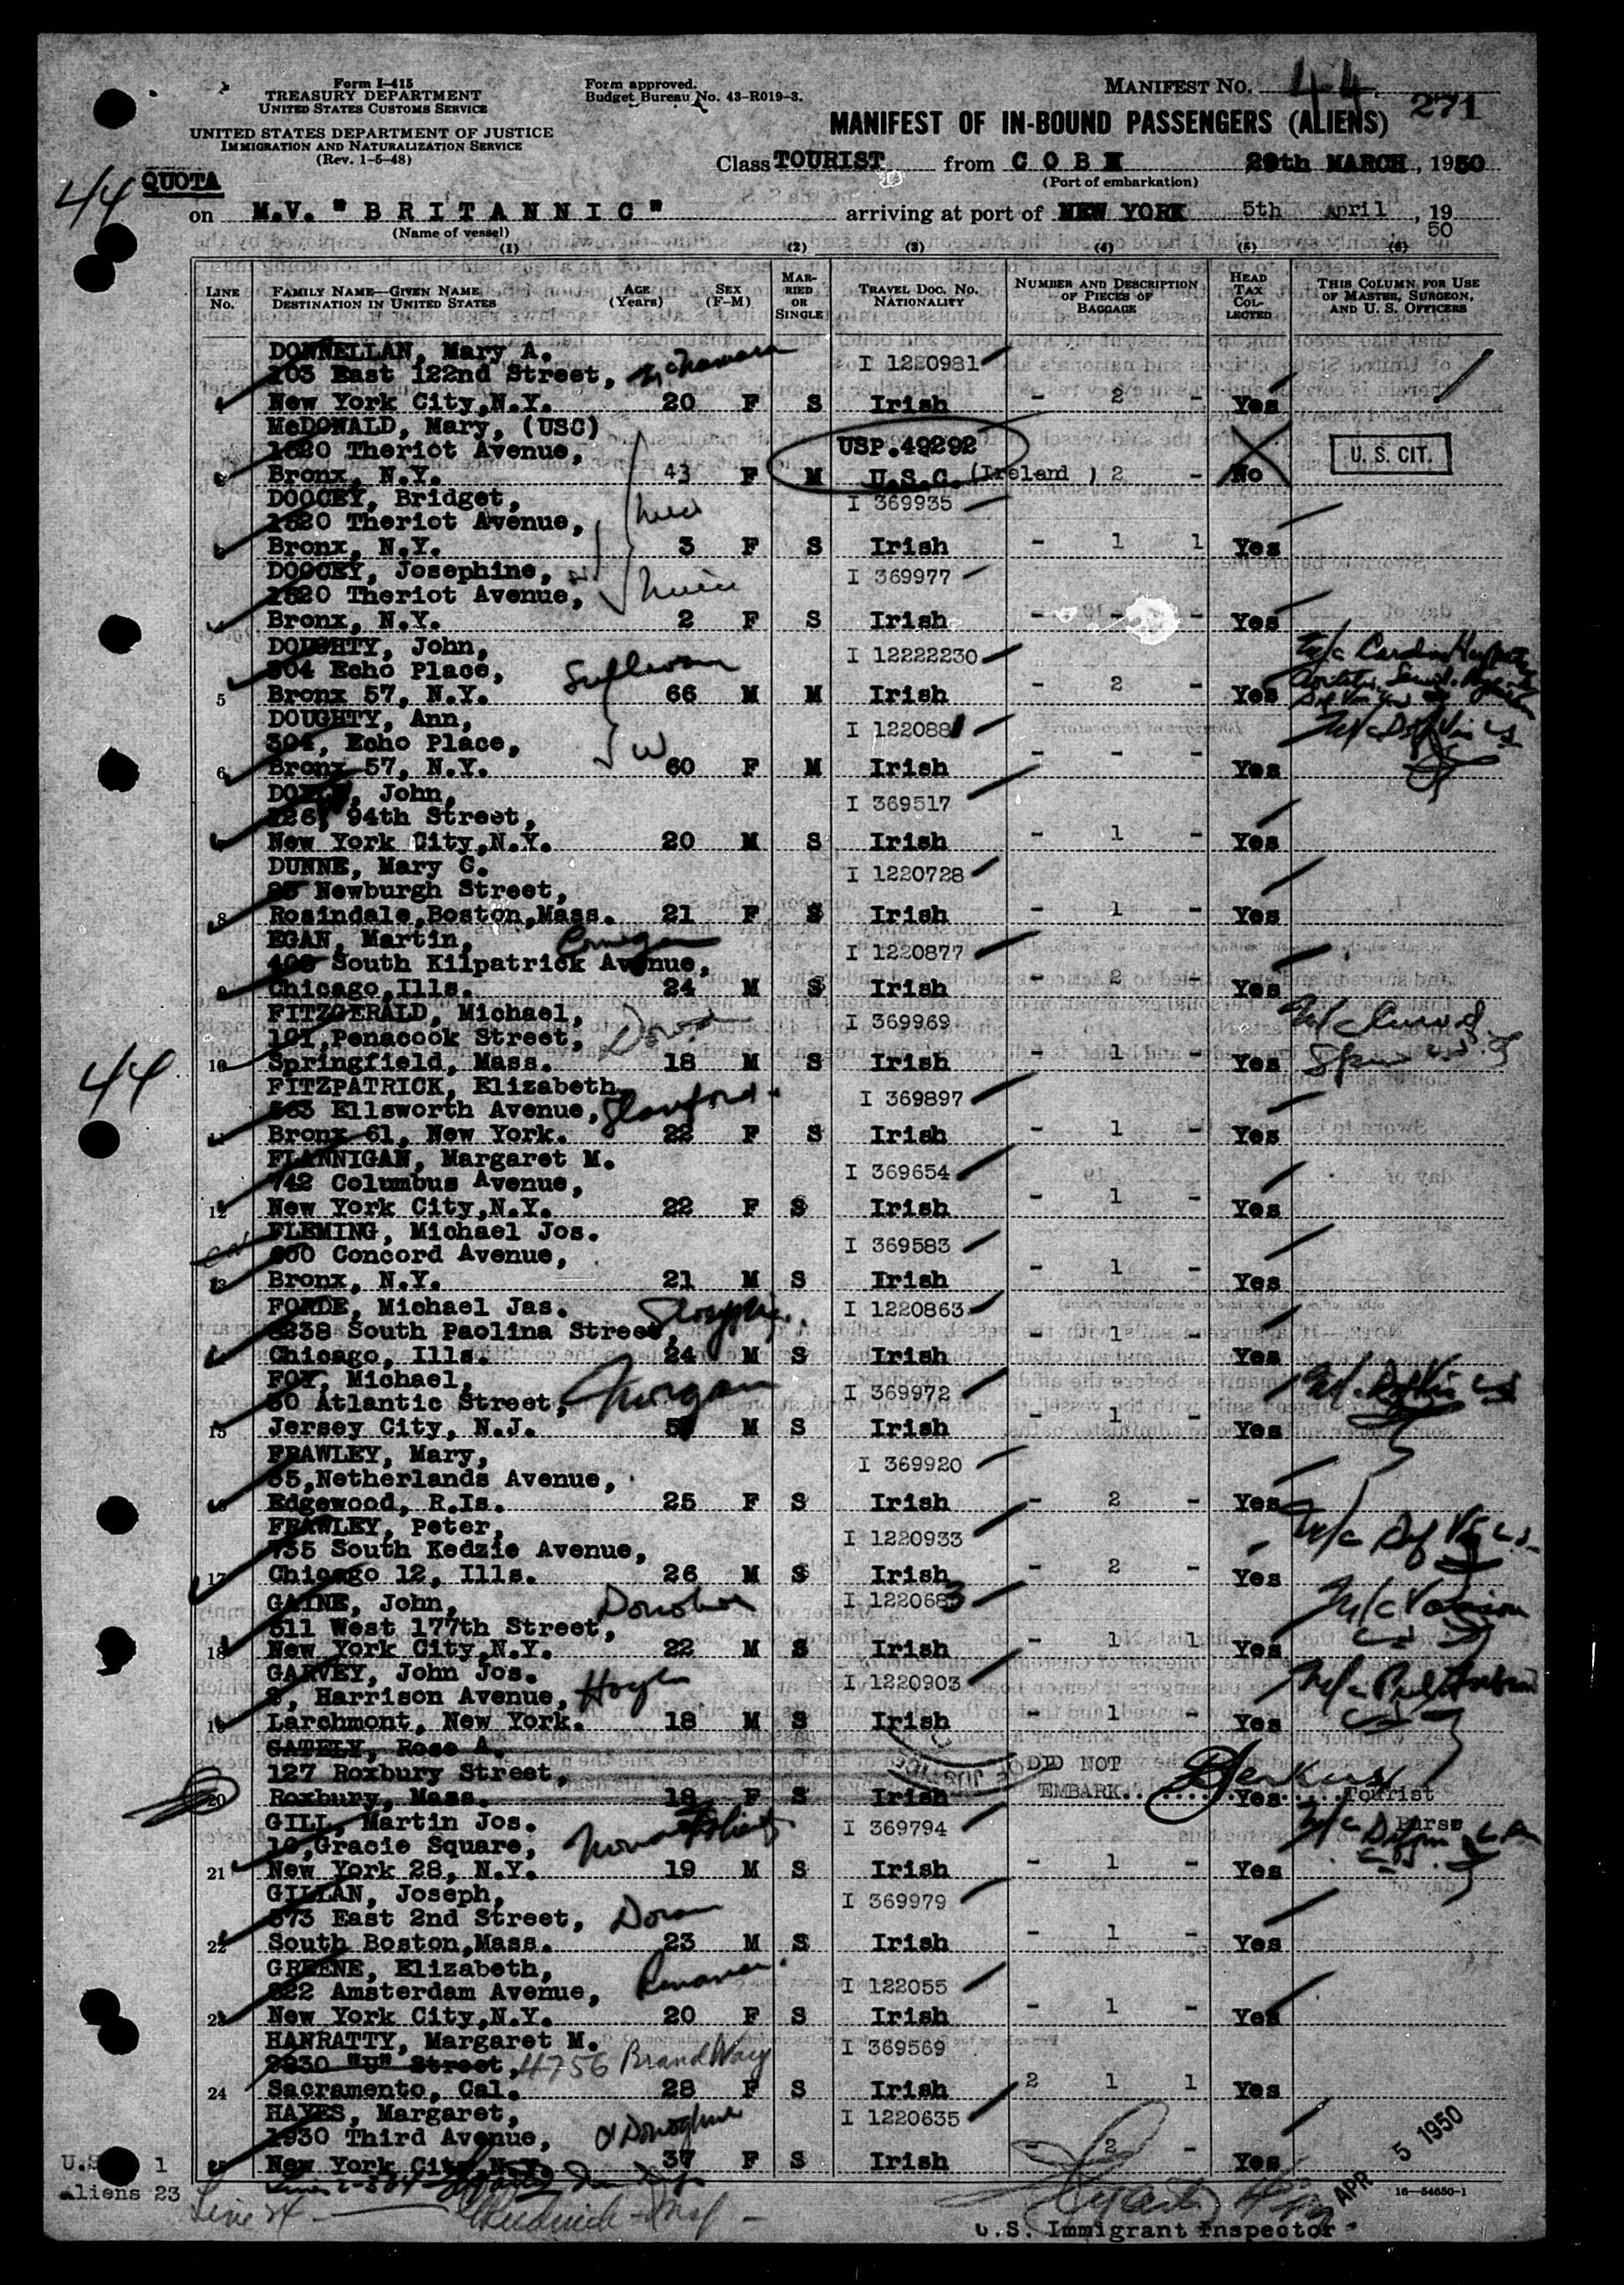 Form I-415
TREASURY DEPARTMENT
UNITED STATES CUSTOMS SERVICE
UNITED STATES DEPARTMENT OF JUSTICE
IMMIGRATION AND NATURALIZATION SERVICE
(Rev. 1-5-48)
Form approved.
Budget Bureau No. 43-R019-3.
MANIFEST NO. 44
271
MANIFEST OF IN-BOUND PASSENGERS (ALIENS)
Class TOURIST from COBH 29th MARCH, 1950
(Port of embarkation)
44
QUOTA
on M.V. "BRITANNIC" arriving at port of NEW YORK 5th April, 1950
(Name of vessel)
(1) (2) (3) (4) (5) (6)
LINE NO.
FAMILY NAME—GIVEN NAME
DESTINATION IN UNITED STATES
AGE (Years)
SEX (F-M)
MARRIED OR SINGLE
TRAVEL DOC. NO. NATIONALITY
NUMBER AND DESCRIPTION OF PIECES OF BAGGAGE
HEAD TAX COLLECTED
THIS COLUMN FOR USE OF MASTER, SURGEON, AND U. S. OFFICERS
DONNELLAN, Mary A. I 1220981
103 East 122nd Street,
New York City,N.Y. 20 F S Irish - 2 - Yes
McDONALD, Mary, (USC) USP.49292
1520 Theriot Avenue,
Bronx, N.Y. 43 F M U.S.C. (Ireland ) 2 - No U. S. CIT.
DOOCEY, Bridget, I 369935
1520 Theriot Avenue,
Bronx, N.Y. 3 F S Irish - 1 1 Yes
DOOCEY, Josephine, I 369977
1520 Theriot Avenue,
Bronx, N.Y. 2 F S Irish - - - Yes
DOUGHTY, John, I 12222230
304 Echo Place, Sullivan
5 Bronx 57, N.Y. 66 M M Irish - 2 - Yes
DOUGHTY, Ann, I 1220881
304, Echo Place, W
6 Bronx 57, N.Y. 60 F M Irish - - - Yes
John, I 369517
94th Street,
New York City,N.Y. 20 M S Irish - 1 - Yes
DUNNE, Mary C. I 1220728
Newburgh Street,
8 Rosindale,Boston,Mass. 21 F S Irish - 1 - Yes
EGAN, Martin, I 1220877
South Kilpatrick Avenue,
9 Chicago,Ills. 24 M S Irish - 2 - Yes
FITZGERALD, Michael, I 369969
101,Penacook Street,
10 Springfield, Mass. 18 M S Irish - 1 - Yes
FITZPATRICK, Elizabeth I 369897
Ellsworth Avenue,
11 Bronx 61, New York. 22 F S Irish - 1 - Yes
44
FLANNIGAN, Margaret M. I 369654
742 Columbus Avenue,
12 New York City,N.Y. 22 F S Irish - 1 - Yes
FLEMING, Michael Jos. I 369583
Concord Avenue,
13 Bronx, N.Y. 21 M S Irish - 1 - Yes
FORDE, Michael Jas. I 1220863
South Paolina Street,
Chicago, Ills. 24 M S Irish - 1 - Yes
FOY, Michael, I 369972
Atlantic Street,
15 Jersey City, N.J. M S Irish - 1 - Yes
FRAWLEY, Mary, I 369920
55,Netherlands Avenue,
16 Edgewood, R.Is. 25 F S Irish - 2 - Yes
FRAWLEY, Peter, I 1220933
735 South Kedzie Avenue,
17 Chicago 12, Ills. 26 M S Irish - 2 - Yes
GAINE, John, I 1220683
511 West 177th Street,
18 New York City,N.Y. 22 M S Irish - 1 1 Yes
GARVEY, John Jos. I 1220903
Harrison Avenue,
19 Larchmont, New York. 18 M S Irish - 1 - Yes
GATELY, Rose A.
127 Roxbury Street, DID NOT
20 Roxbury, Mass. 18 F S Irish EMBARK Yes Tourist
Purse
GILL, Martin Jos. I 369794
10,Gracie Square,
21 New York 28, N.Y. 19 M S Irish - 1 - Yes
GILLAN, Joseph, I 369979
573 East 2nd Street, Doran
22 South Boston,Mass. 23 M S Irish - 1 - Yes
GREENE, Elizabeth, I 122055
Amsterdam Avenue,
23 New York City,N.Y. 20 F S Irish - 1 - Yes
HANRATTY, Margaret M. I 369569
2930 "U" Street, 4756 Brand Way
24 Sacramento, Cal. 28 F S Irish 2 1 1 Yes
HAYES, Margaret, I 1220635
1930 Third Avenue, O'Donoghue
New York City,N.Y. 37 F S Irish - 2 - Yes
U.S. 1
Aliens 23
Line 24
APR 5 1950
16—54650-1
U.S. Immigrant Inspector